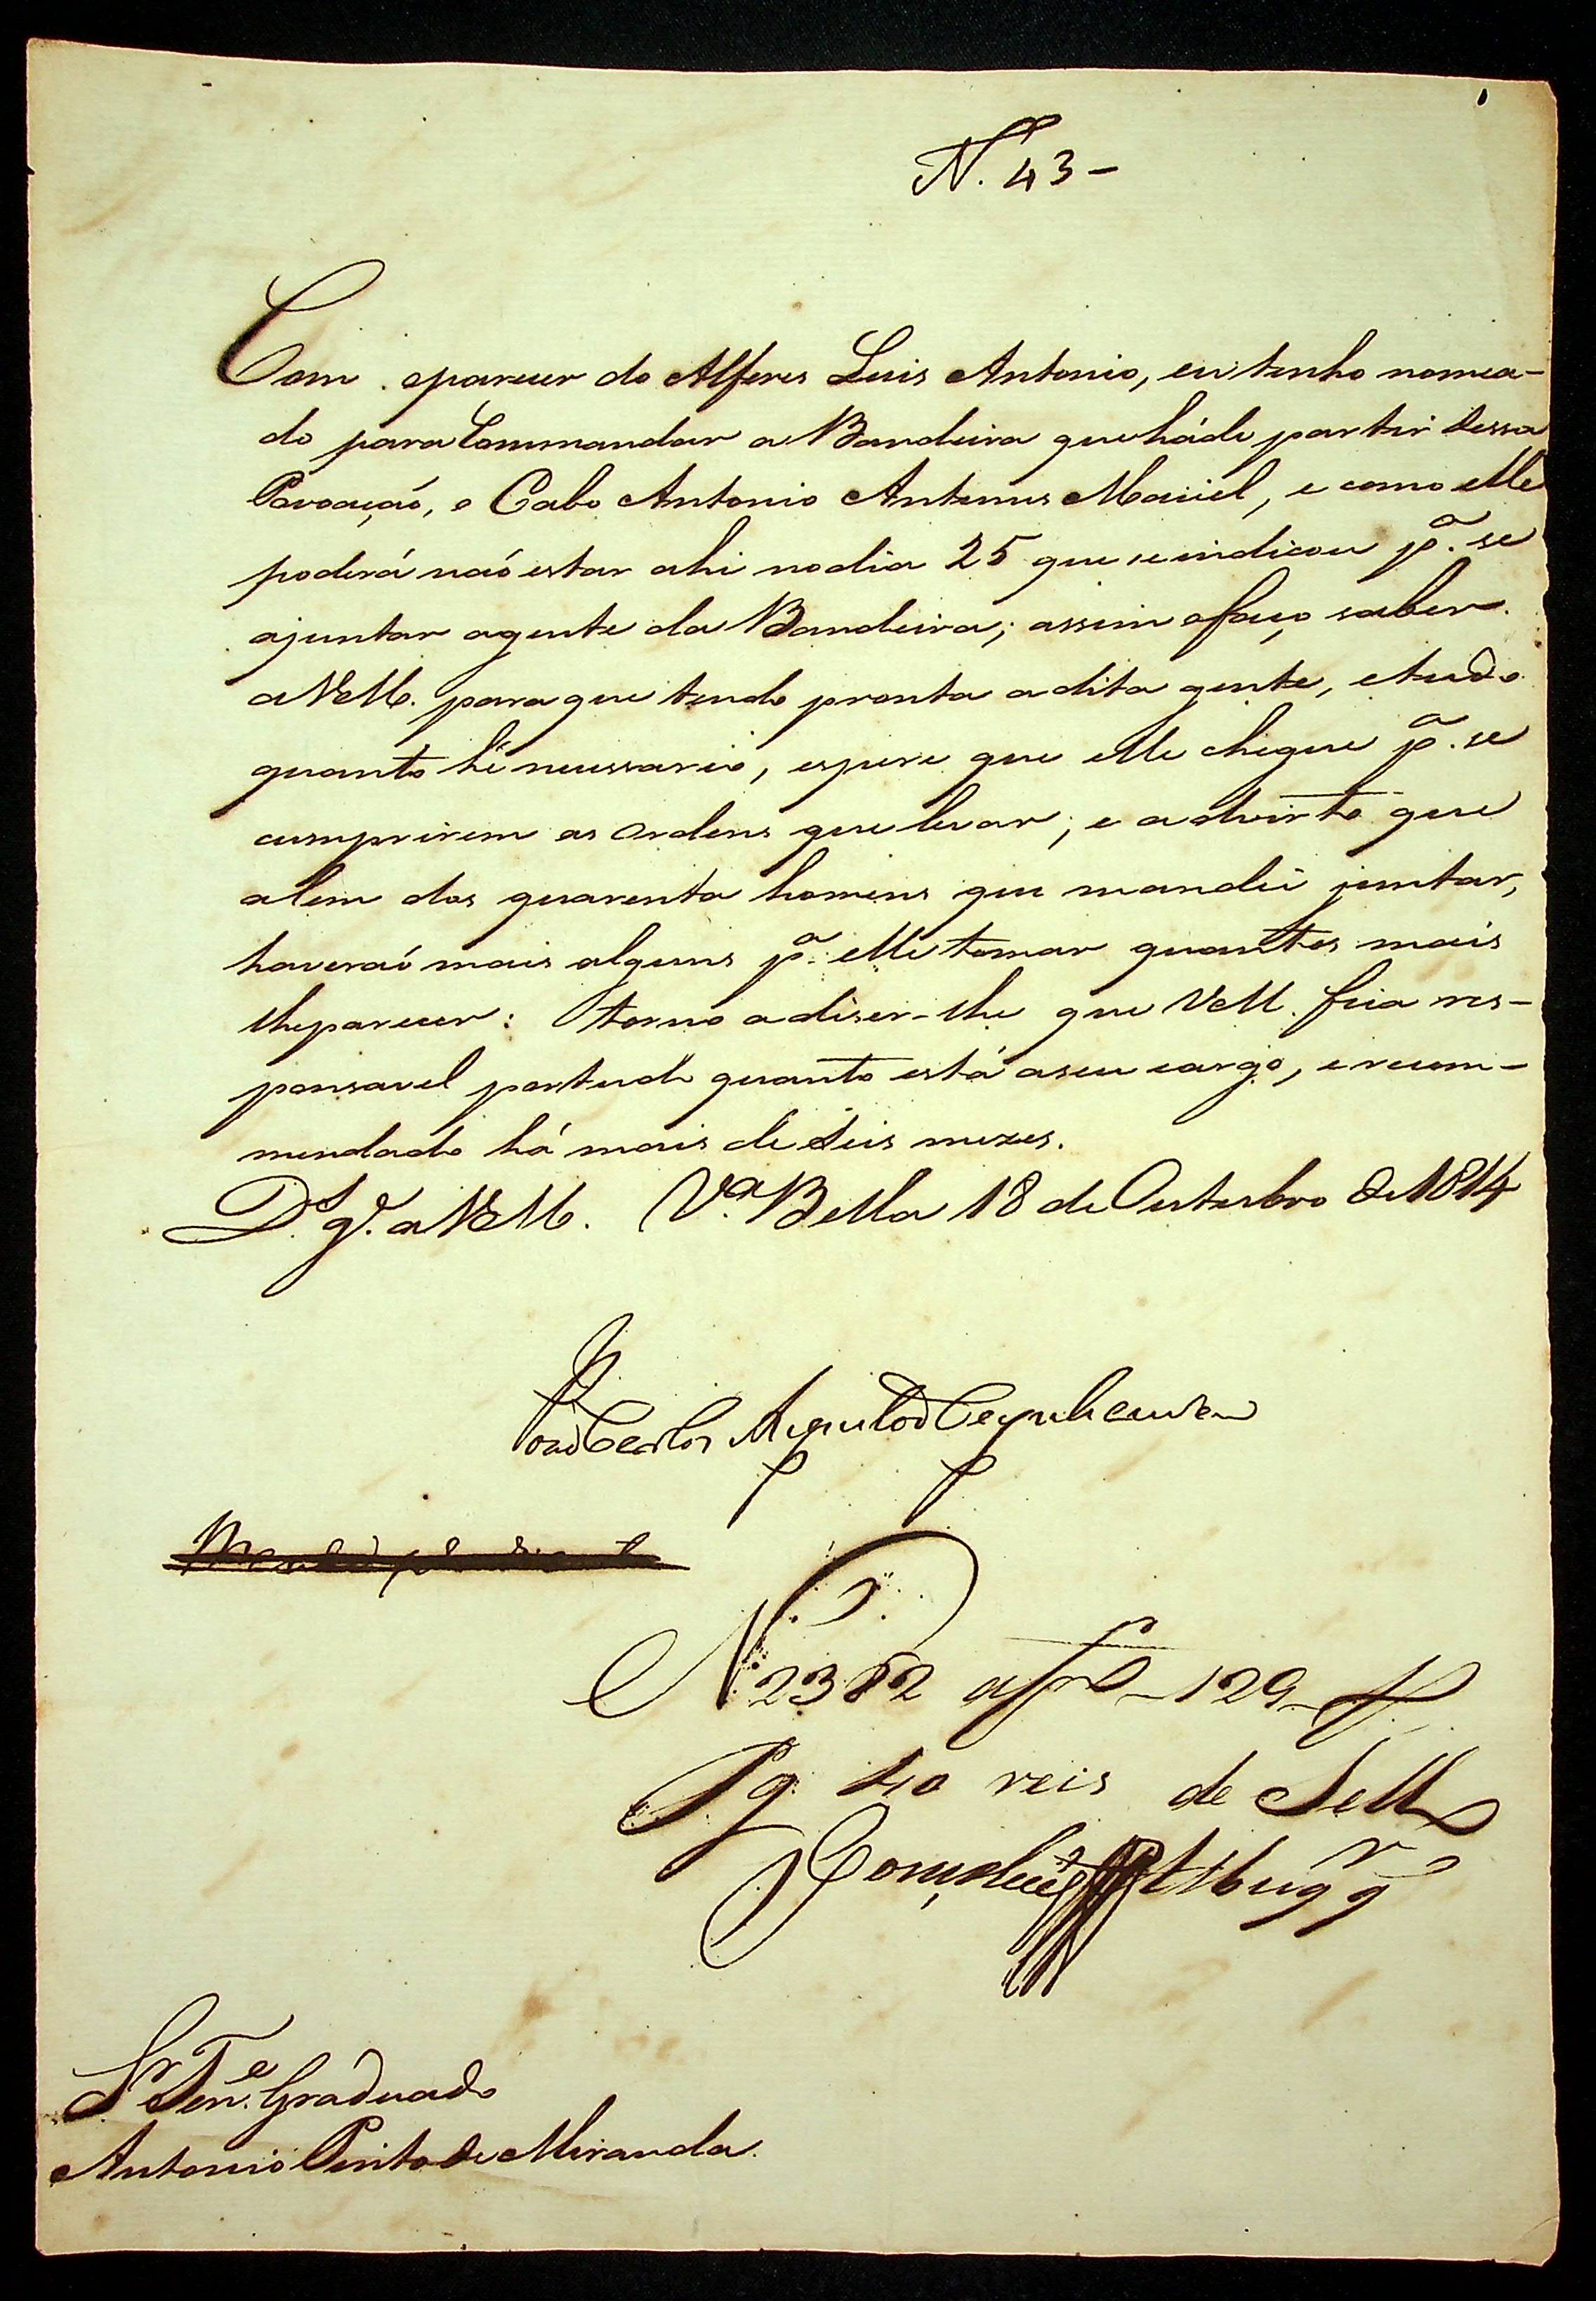 N. 43-
Com oparecer do Alferes Luis Antonio, eu tenho nomea-
do para Commandar a Bandeira que háde partir dessa
Povoaçaõ, o Cabo Antonio Antunes Maciel, e como elle
poderá naõ estar ahi no dia 25 que se indicou pª. se
ajuntar agente da Bandeira; assim ofaço saber
a VM. para que tendo pronta adita gente, etudo
quanto hé necessario, espere que elle chegue pª. se
cumprirem as ordens que levar; e advirto que
alem dos quarenta homens que mandei juntar,
haveraõ mais alguns pª. elle tomar quantos mais
lheparecer: torno adiser-lhe que VM. fica res-
ponsavel portudo quanto está aseu cargo, erecom-
mendado há mais de seis mezes.
D.s g.de a VM. Vª. Bella 18 de Outubro de 1814
João Carlos Augusto d'Oeynhausen
N 2382 a f 129
Pg. 40 reis de Sello
Sr. Ten.e Graduado
Antonio Pinto de Miranda.